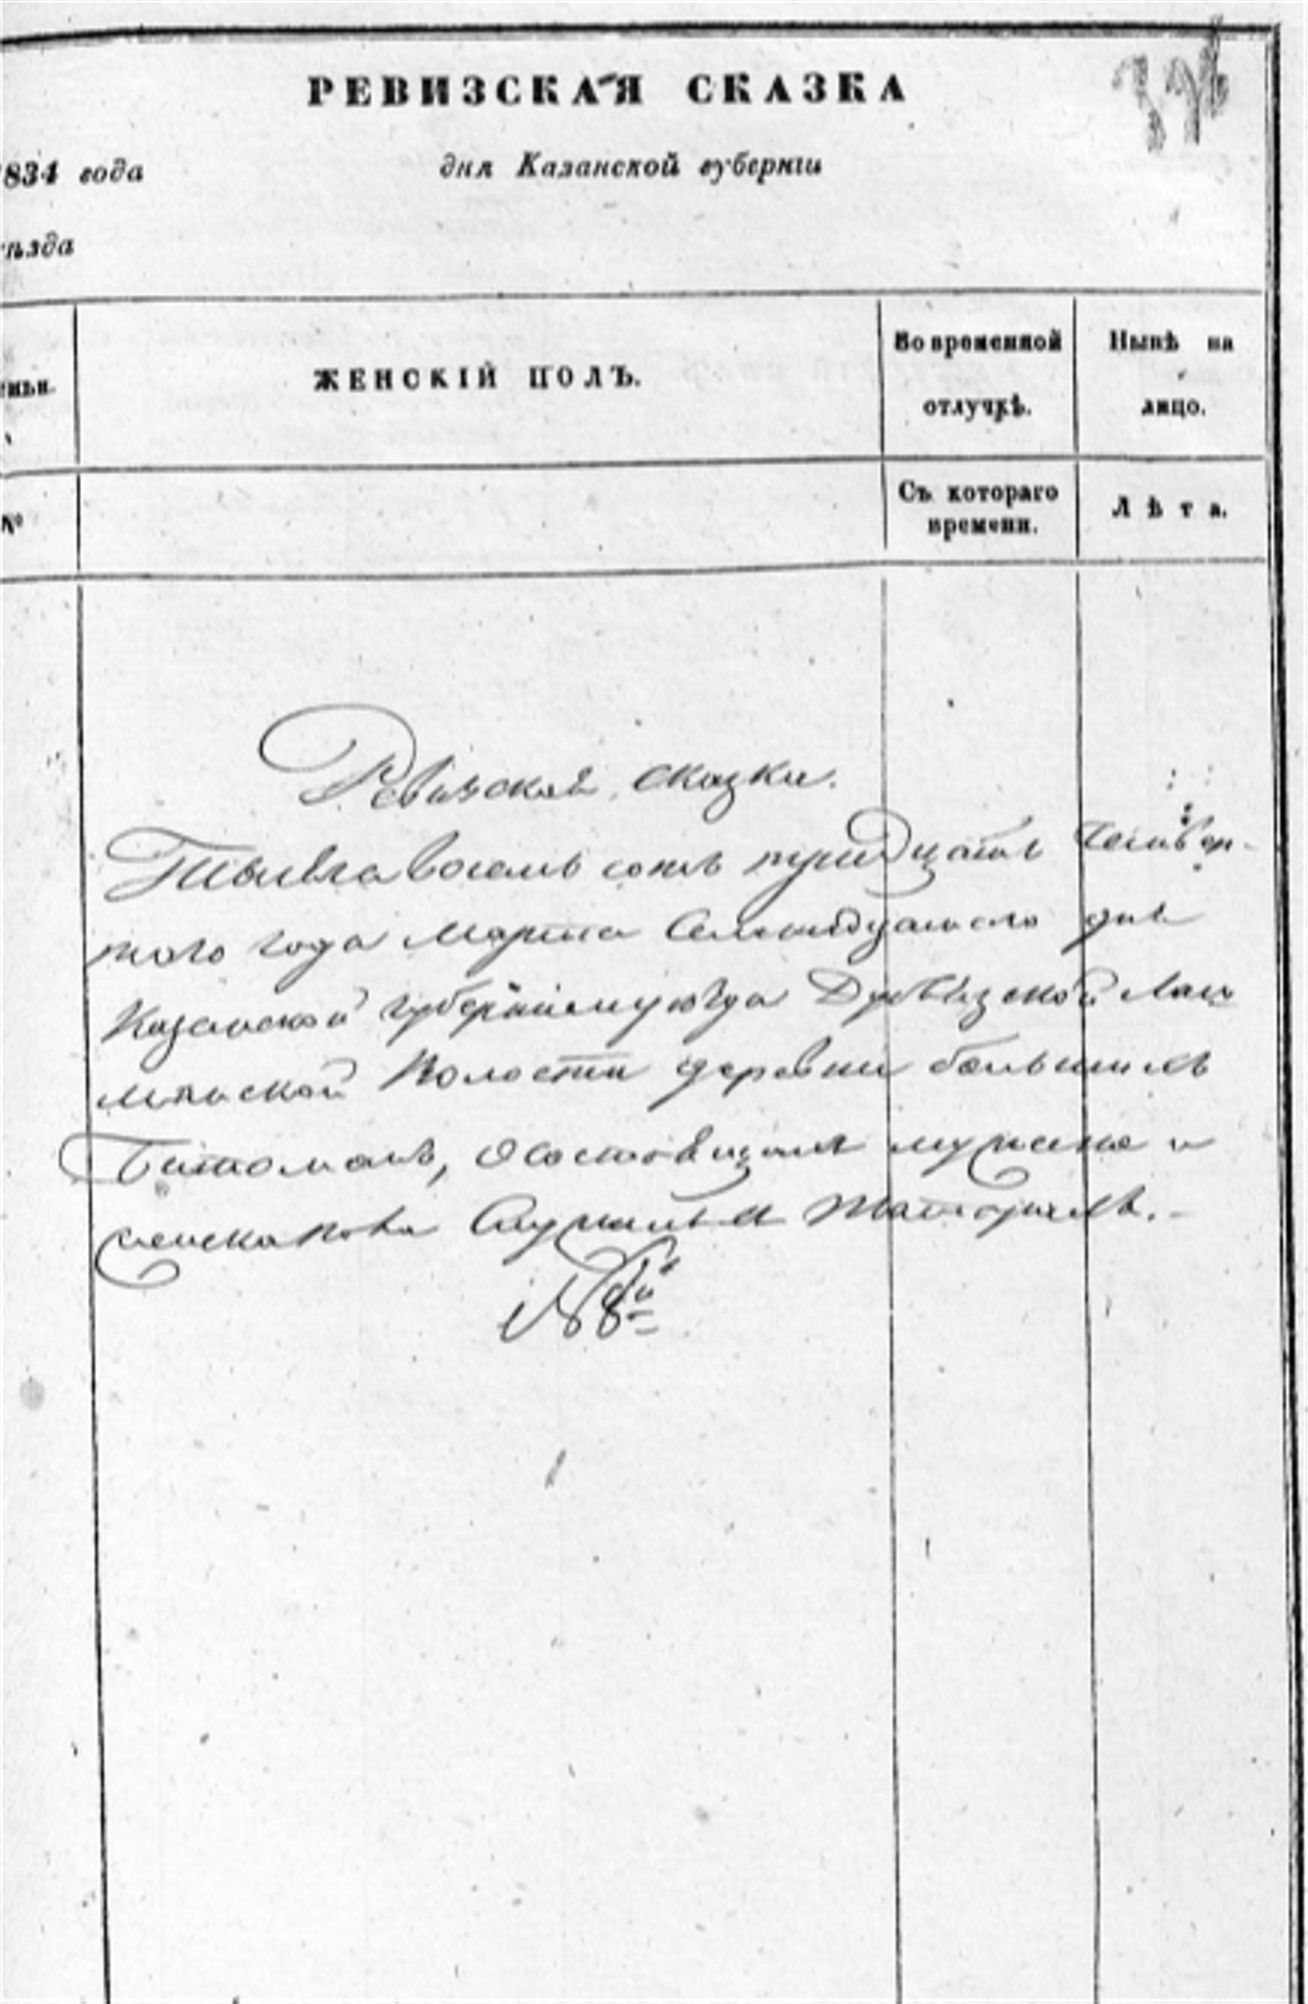 РЕВИЗСКАЯ СКАЗКА
834 года дня Казанской губерніи
ѣзда
ЖЕНСКІЙ ПОЛЪ.
Во временной
отлучкѣ.
Нынѣ на
лицо.
№
Съ котораго
времени.
Лѣта.
Ревизская сказка.
Тысяча восемь сотъ тридцать четвер-
того года марта дня
Казанской губерніи уѣзда
волости деревни большихъ
о состоящихъ мужска и
женска пола Служилыхъ Татарахъ.